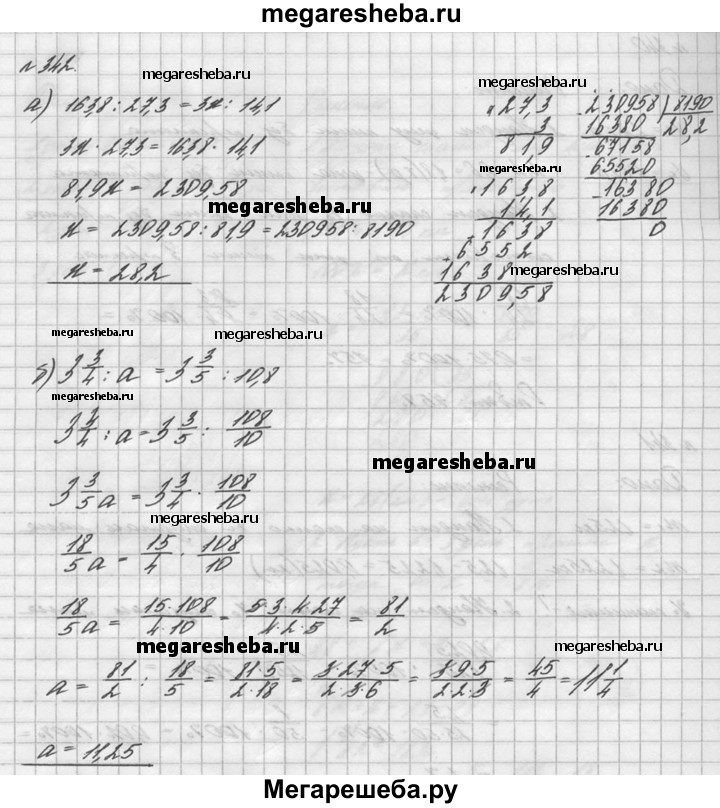 megaresheba.ru
№ 342.
megaresheba.ru
а) 163,8 : 27,3 = 3x : 14,1
3x · 27,3 = 163,8 · 14,1
81,9x = 2309,58
megaresheba.ru
x = 2309,58 : 81,9 = 230958 : 8190
x = 28,2
27,3
3
81,9
megaresheba.ru
1638
14,1
1638
6552
1638
megaresheba.ru
2309,58
230958 | 8190
16380 28,2
67158
65520
16380
16380
0
megaresheba.ru
megaresheba.ru
б) 3 3/4 : a = 3 3/5 : 10,8
megaresheba.ru
3 3/4 : a = 3 3/5 : 108/10
megaresheba.ru
3 3/5 a = 3 3/4 · 108/10
megaresheba.ru
18/5 a = 15/4 · 108/10
18/5 a = 15·108/4·10 = 5·3·4·27/4·2·5 = 81/2
megaresheba.ru
megaresheba.ru
a = 81/2 : 18/5 = 81·5/2·18 = 3·27·5/2·3·6 = 3·9·5/2·2·3 = 45/4 = 11 1/4
a = 11,25
Мегарешеба.ру